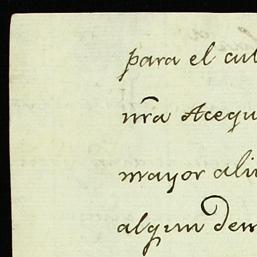 para el cul
nrã Acequ
mayor ali
algun dem